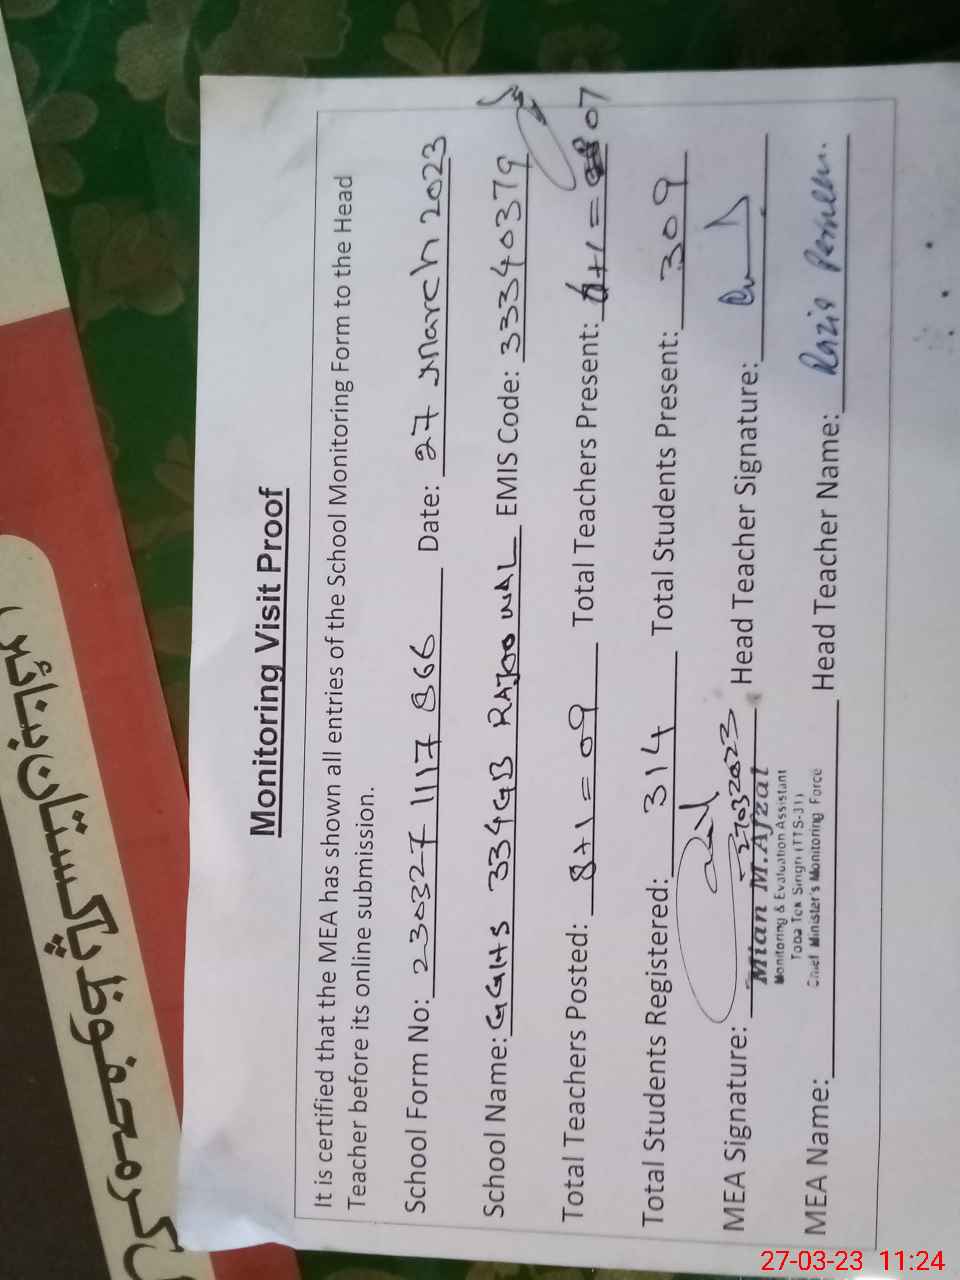 Monitoring Visit Proof
It is certified that the MEA has shown all entries of the School Monitoring Form to the Head
Teacher before its online submission.
School Form No: 230327 1117 866 Date: 27 March 2023
School Name: GGHS 334GB RAJOOWAL EMIS Code: 33340379
Total Teachers Posted: 8+1=09 Total Teachers Present: 6+1=07
Total Students Registered: 314 Total Students Present: 309
MEA Signature: 27032023 Head Teacher Signature:
Mian M.Afzal
Monitoring & Evaluation Assistant
Toba Tek Singh (TTS-31)
Chief Minister's Monitoring Force
MEA Name: Head Teacher Name: Razia Perveen.
کر محفوظ پاکستان بنائیں
27-03-23 11:24